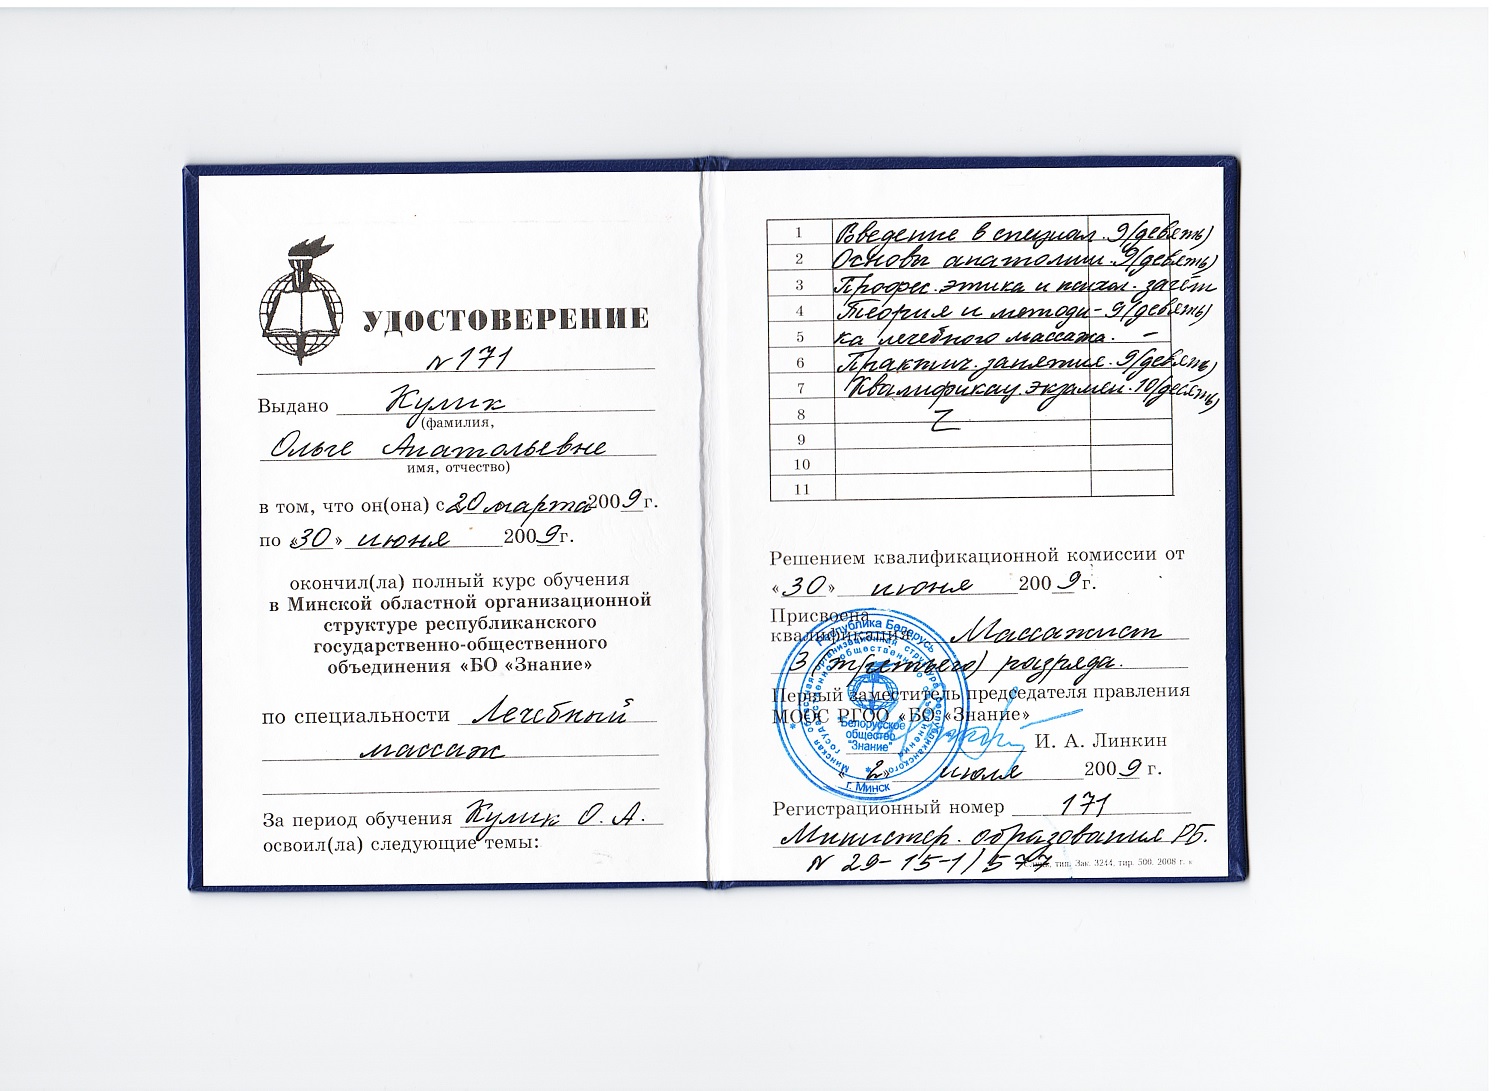 УДОСТОВЕРЕНИЕ
N 171
Выдано Кулик
(фамилия,
Ольге Анатольевне
имя, отчество)
в том, что он(она) с 20 марта 2009 г.
по «30» июня 2009 г.
окончил(ла) полный курс обучения
в Минской областной организационной
структуре республиканского
государственно-общественного
объединения «БО «Знание»
по специальности Лечебный
массаж
За период обучения Кулик О. А.
освоил(ла) следующие темы:
1 Введение в специал. 9(девять)
2 Основы анатомии. 9(девять)
3 Професс. этика и психол. зачёт
4 Теория и методи- 9(девять)
5 ка лечебного массажа. –
6 Практич. занятия. 9(девять)
7 Квалификац. экзамен. 10(десять)
8
9
10
11
Решением квалификационной комиссии от
«30» июня 2009 г.
Присвоена
квалификация Массажист
3 (третьего) разряда.
Первый заместитель председателя правления
МООС РГОО «БО «Знание»
И. А. Линкин
«2» июля 2009 г.
Регистрационный номер 171
Министер. образования РБ.
N 29-15-1/577
тип. Зак. 3244, тир. 500. 2008 г.
Республика Беларусь
Минская областная организационная структура республиканского
государственно-общественного объединения
"Белорусское
общество
"Знание"
г. Минск